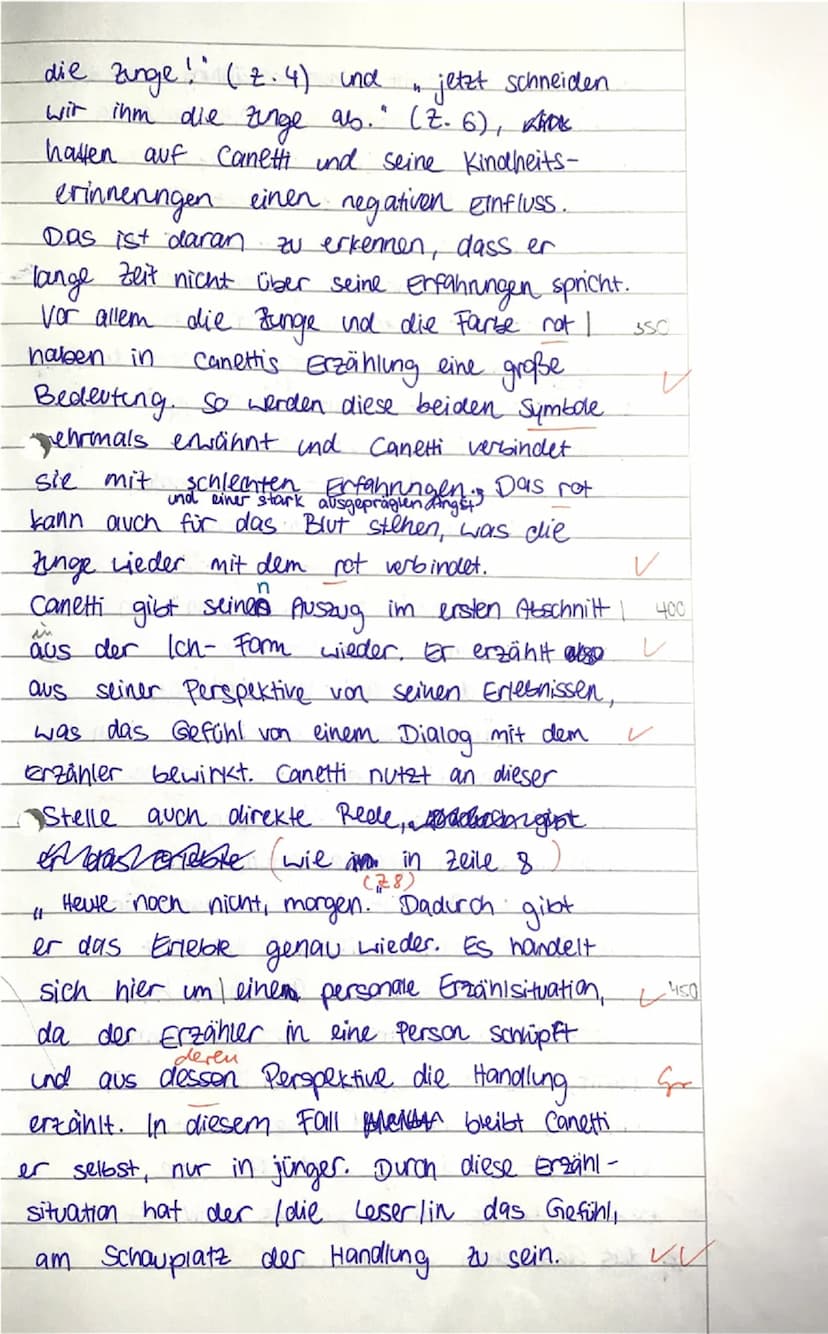 die Zunge!" (Z. 4) und „jetzt schneiden
wir ihm die Zunge ab." (Z. 6),
hatten auf Canetti und seine Kindheits-
erinnerungen einen negativen Einfluss.
Das ist daran zu erkennen, dass er
lange Zeit nicht über seine Erfahrungen spricht.
Vor allem die Zunge und die Farbe rot | 350
haben in Canettis Erzählung eine große
Bedeutung. So werden diese beiden Symbole
mehrmals erwähnt und Canetti verbindet
sie mit schlechten Erfahrungen. Das rot
und einer stark ausgeprägten Angst
kann auch für das Blut stehen, was die
Zunge wieder mit dem rot verbindet.
Canetti gibt seinen Auszug im ersten Abschnitt | 400
in
aus der Ich-Form wieder. Er erzählt also
aus seiner Perspektive von seinen Erlebnissen,
was das Gefühl von einem Dialog mit dem
Erzähler bewirkt. Canetti nutzt an dieser
Stelle auch direkte Rede,
(wie in Zeile 8)
(Z 8)
„Heute noch nicht, morgen." Dadurch gibt
er das Erlebte genau wieder. Es handelt
sich hier um | eine personale Erzählsituation, 450
da der Erzähler in eine Person schlüpft
deren
und aus dessen Perspektive die Handlung Gr
erzählt. In diesem Fall bleibt Canetti
er selbst, nur in jünger. Durch diese Erzähl-
situation hat der /die Leser/in das Gefühl,
am Schauplatz der Handlung zu sein.